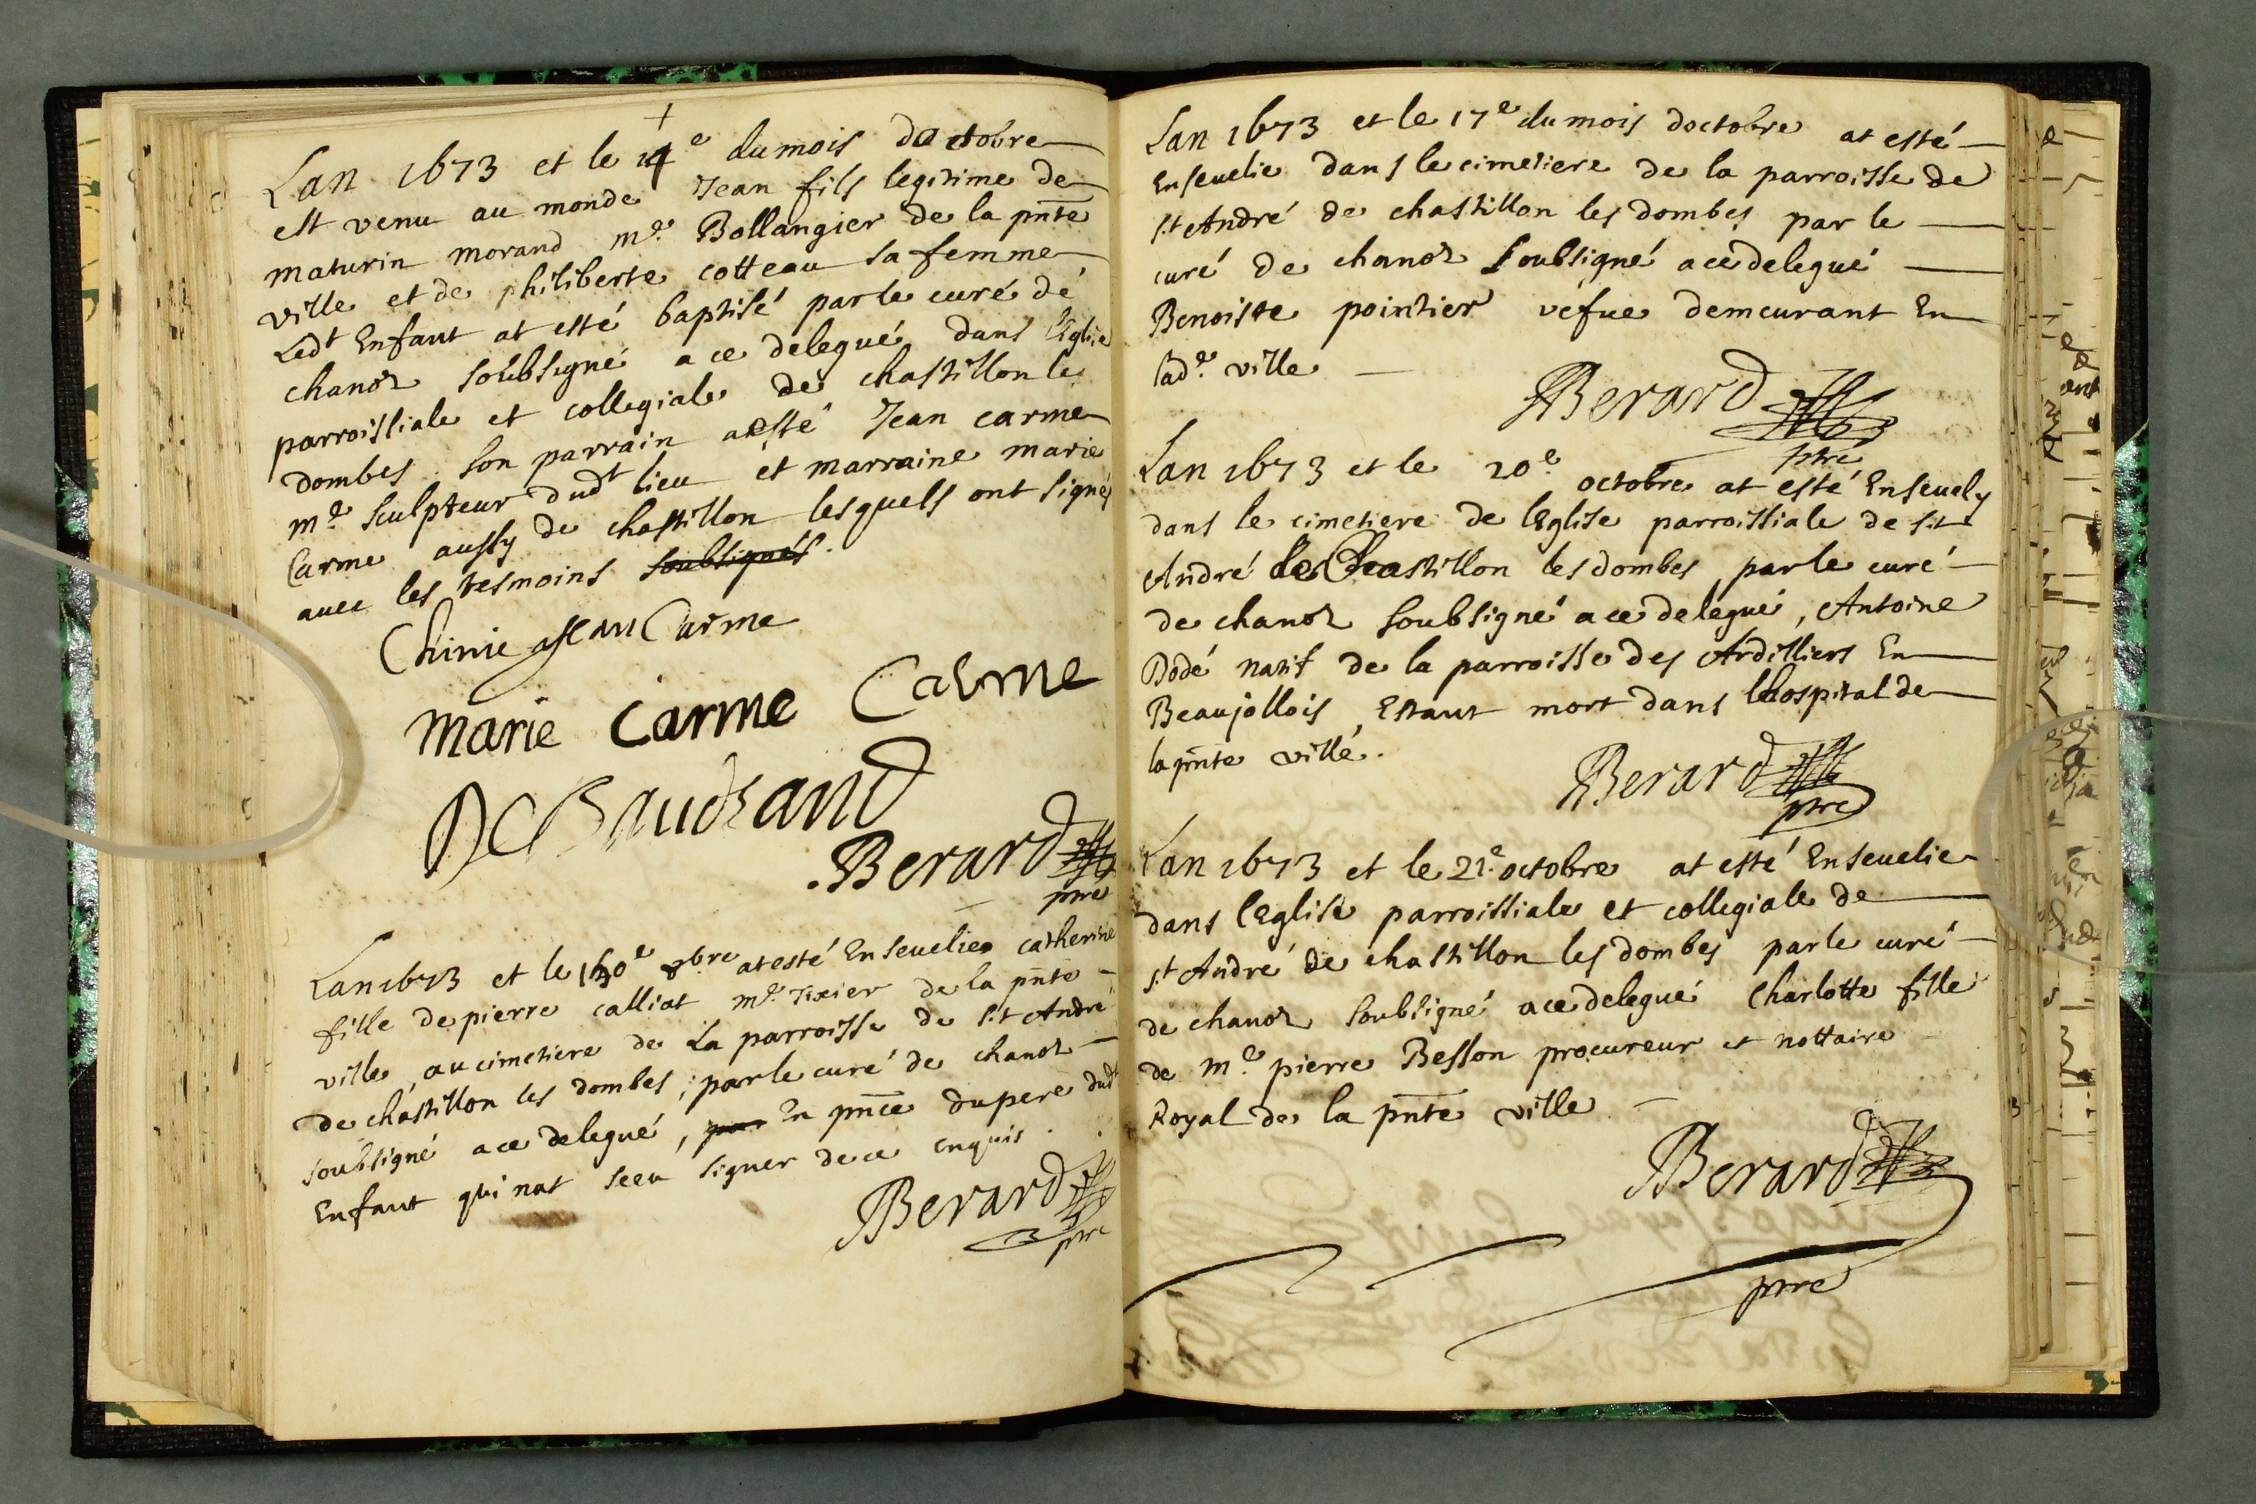 Lan 1673 et le 14e du mois doctobre
est venu au monde Jean fils legitime de
maturin morand me. Bollangier de la pnte
ville et de philiberte cotteau sa femme
Ledt Enfant at esté baptisé par le curé de
chanoz soubsigné a ce delegué dans l'Eglise
parroissiale et collegiale de chastillon les
dombes. Son parrain at esté Jean carme
me. sculpteur dudt lieu et marraine marie
Carme aussy de chastillon lesquels ont signés
avec les tesmoins soubsignés.
Chinie Jean Carme
marie Carme Carme
DCBaudrand
Berard
ptre
Lan 1673 et le 8bre at esté Enseuelie catherine
fille de pierre calliat me. tixier de la pnte
ville, au cimetiere de La parroisse de St André
de chastillon les dombes, par le curé de chanoz
soubsigné a ce delegué, par En pnce du pere dudt
Enfant qui nat sceu signer de ce enquis.
Berard
ptre
Lan 1673 et le 17e du mois doctobre at esté
Enseuelie dans le cimetiere de la parroisse de
St André de chastillon les dombes par le
curé de chanoz soubsigné a ce delegué
Benoiste pointier vefue demeurant En
lade. ville
Berard
ptre
Lan 1673 et le 20e. octobre at esté Enseuely
dans le cimetiere de lEglise parroissiale de St
André de Chastillon les dombes par le curé
de chanoz soubsigné a ce delegué, Antoine
Dodé natif de la parroisse des Ardilliers En
Beaujollois, Estant mort dans lhospital de
la pnte ville.
Berard
ptre
Lan 1673 et le 21e. octobre at esté Enseuelie
dans lEglise parroissiale et collegiale de
St André de chastillon les dombes par le curé
de chanoz soubsigné a ce delegué Charlotte fille
de me. pierre Besson procureur et nottaire
Royal de la pnte ville
Berard
ptre